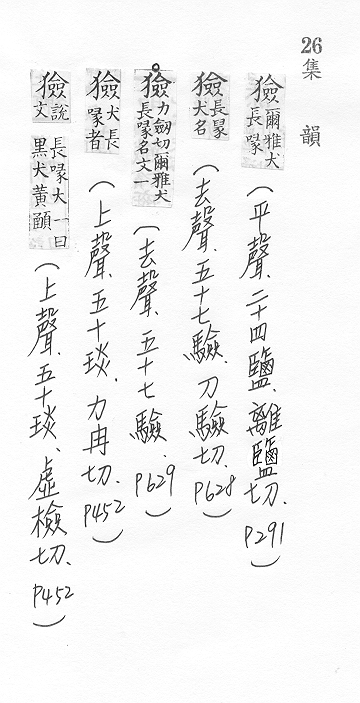 26 集韻
獫 爾雅犬長喙 (平聲、二十四鹽、離鹽切、P291)
獫 長喙犬名 (去聲、五十七驗、力驗切、P628)
獫 力劒切爾雅犬長喙名文一 (去聲、五十七驗、P629)
獫 犬長喙者 (上聲、五十琰、力冉切、P452)
獫 說文長喙犬一曰黑犬黃頤 (上聲、五十琰、虛檢切、P452)